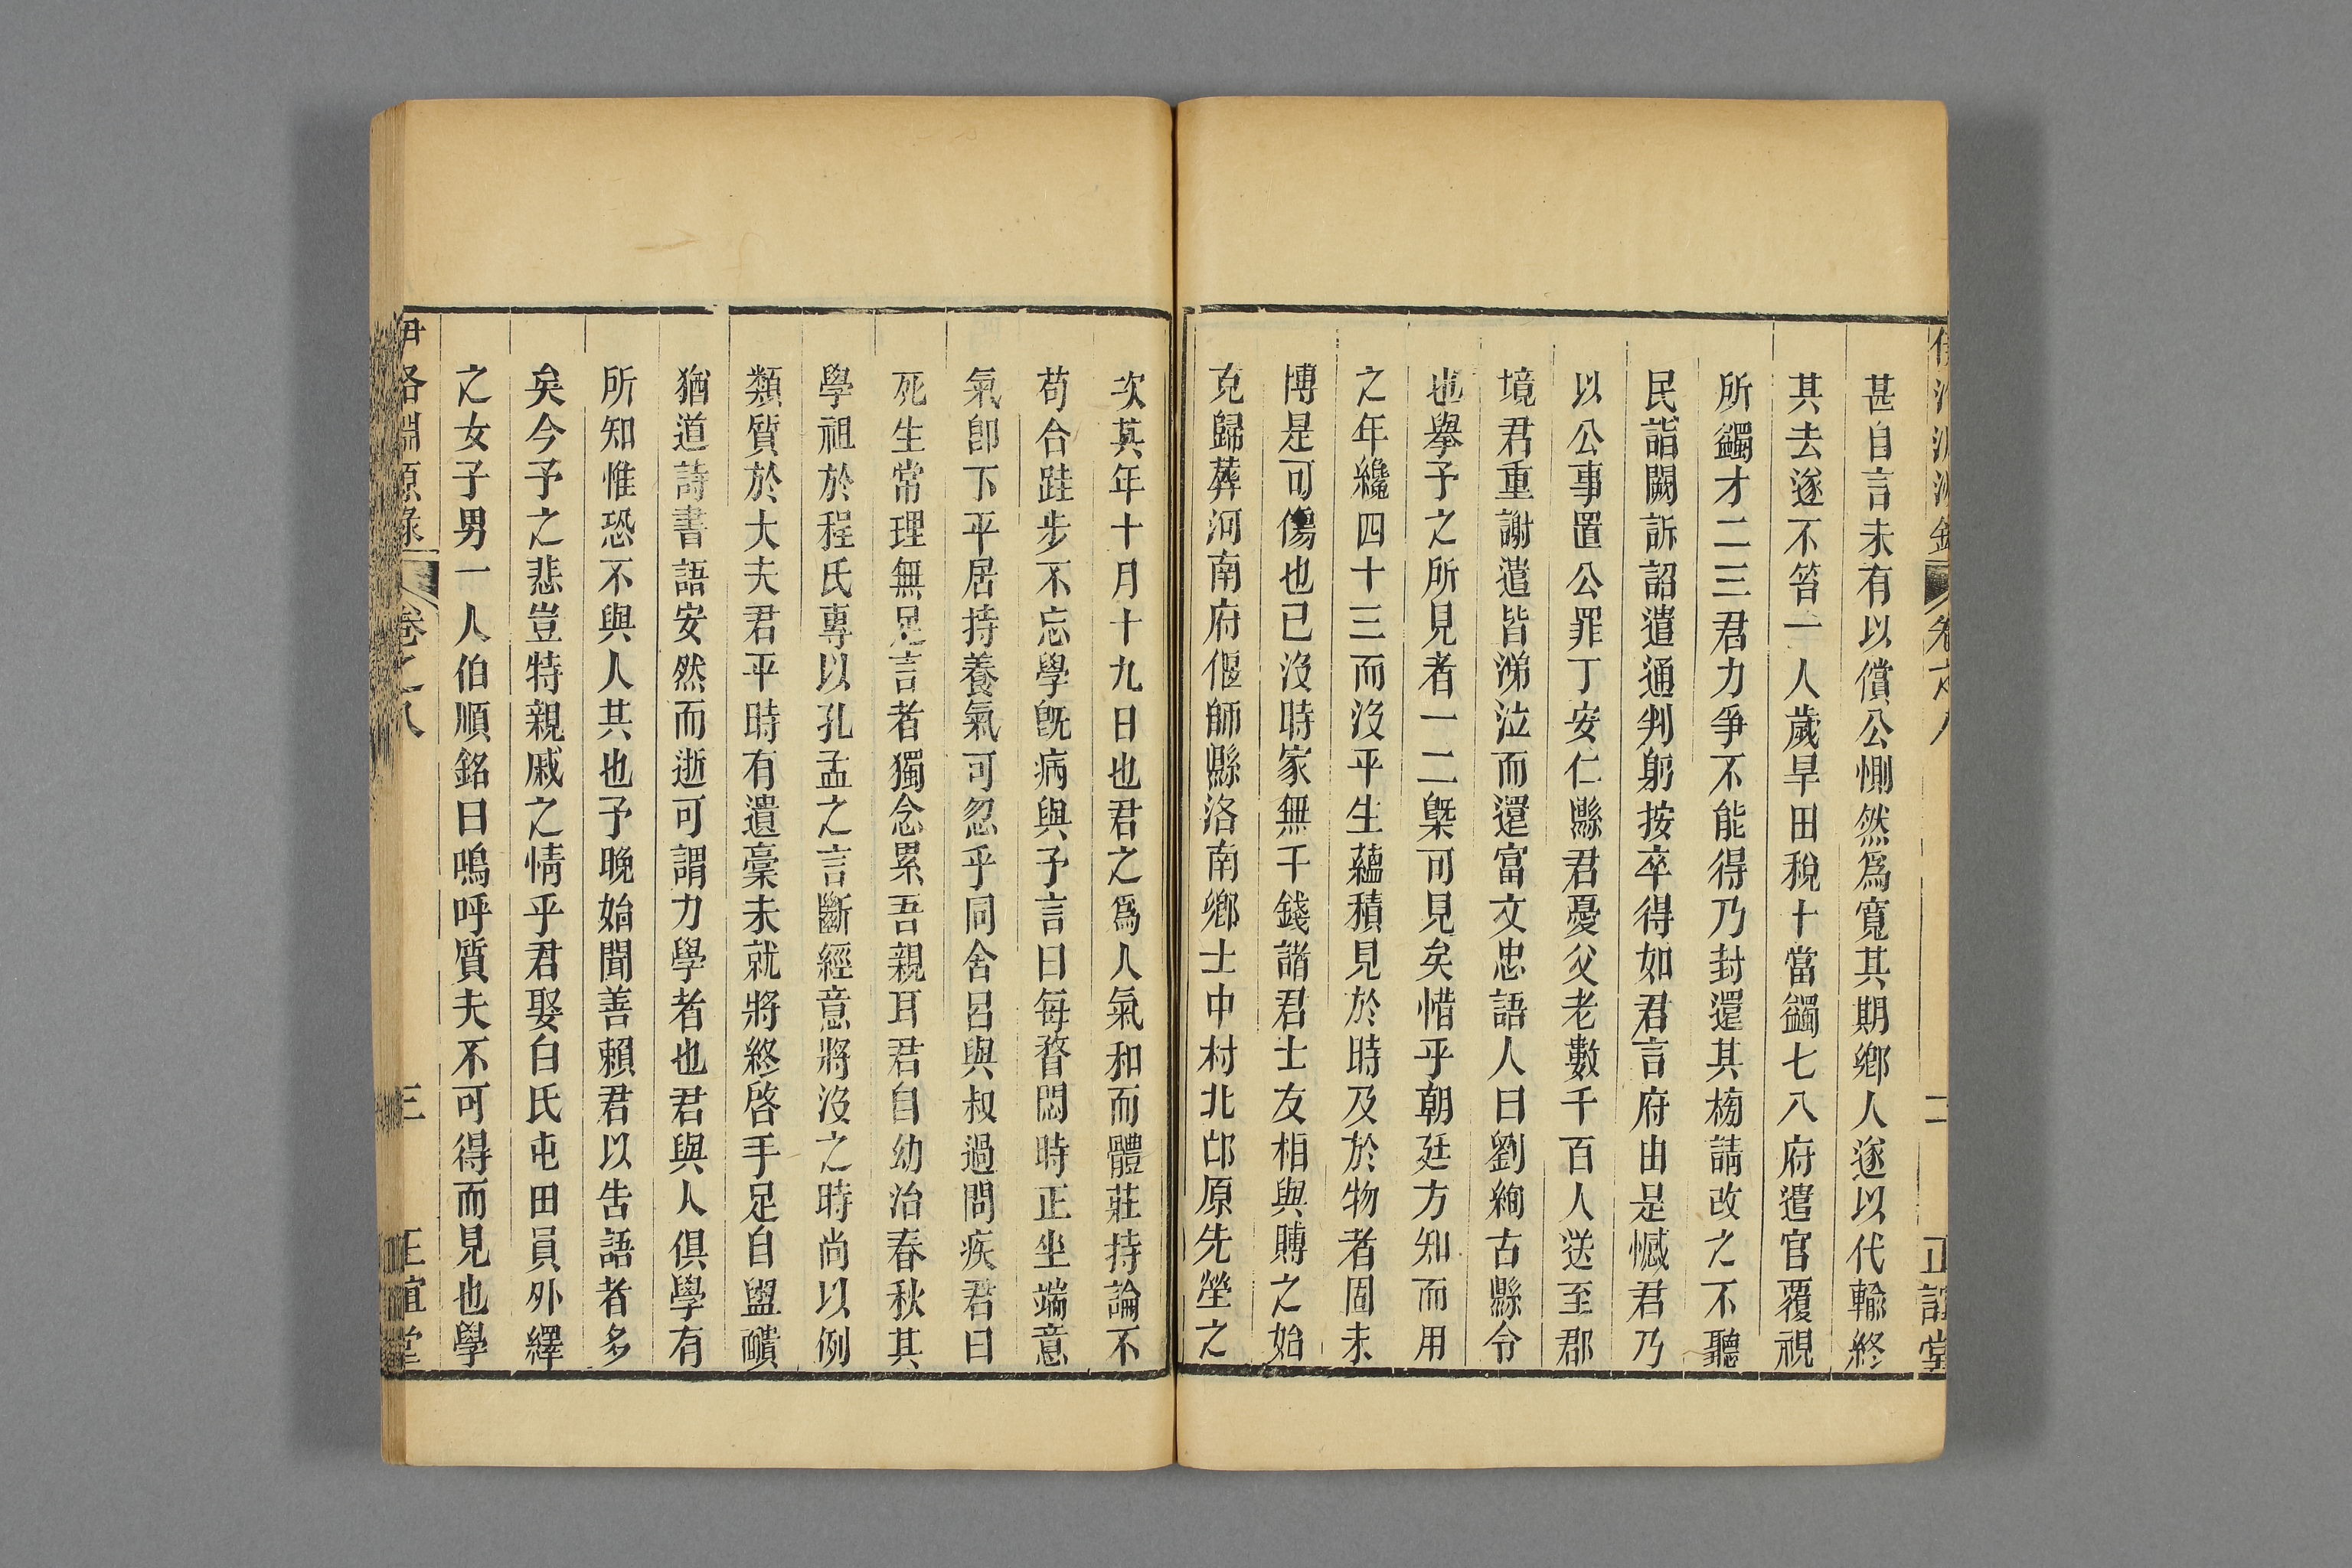 甚自言未有以償公惻然爲寬其期鄉人遂以代輸終
其去遂不笞一人歲旱田稅十當蠲七八府遣官覆視
所蠲才二三君力爭不能得乃封還其榜請改之不聽
民詣闕訴詔遣通判躬按卒得如君言府由是憾君乃
以公事置公罪丁安仁縣君憂父老數千百人送至郡
境君重謝遣皆涕泣而還富文忠語人曰劉絢古縣令
也舉予之所見者一二槩可見矣惜乎朝廷方知而用
之年纔四十三而沒平生蘊積見於時及於物者固未
博是可傷也已沒時家無千錢諸君士友相與賻之始
克歸葬河南府偃師縣洛南鄉士中村北邙原先塋之
次其年十月十九日也君之爲人氣和而體莊持論不
苟合跬步不忘學旣病與予言曰每瞀悶時正坐端意
氣卽下平居持養氣可忽乎同舍呂與叔過問疾君曰
死生常理無足言者獨念累吾親耳君自幼治春秋其
學祖於程氏專以孔孟之言斷經意將沒之時尚以例
類質於大夫君平時有遺稾未就將終啓手足自盥頮
猶道詩書語安然而逝可謂力學者也君與人俱學有
所知惟恐不與人其也予晚始聞善賴君以告語者多
矣今予之悲豈特親戚之情乎君娶白氏屯田員外繹
之女子男一人伯順銘曰嗚呼質夫不可得而見也學
伊洛淵源錄 卷之八 三 正誼堂